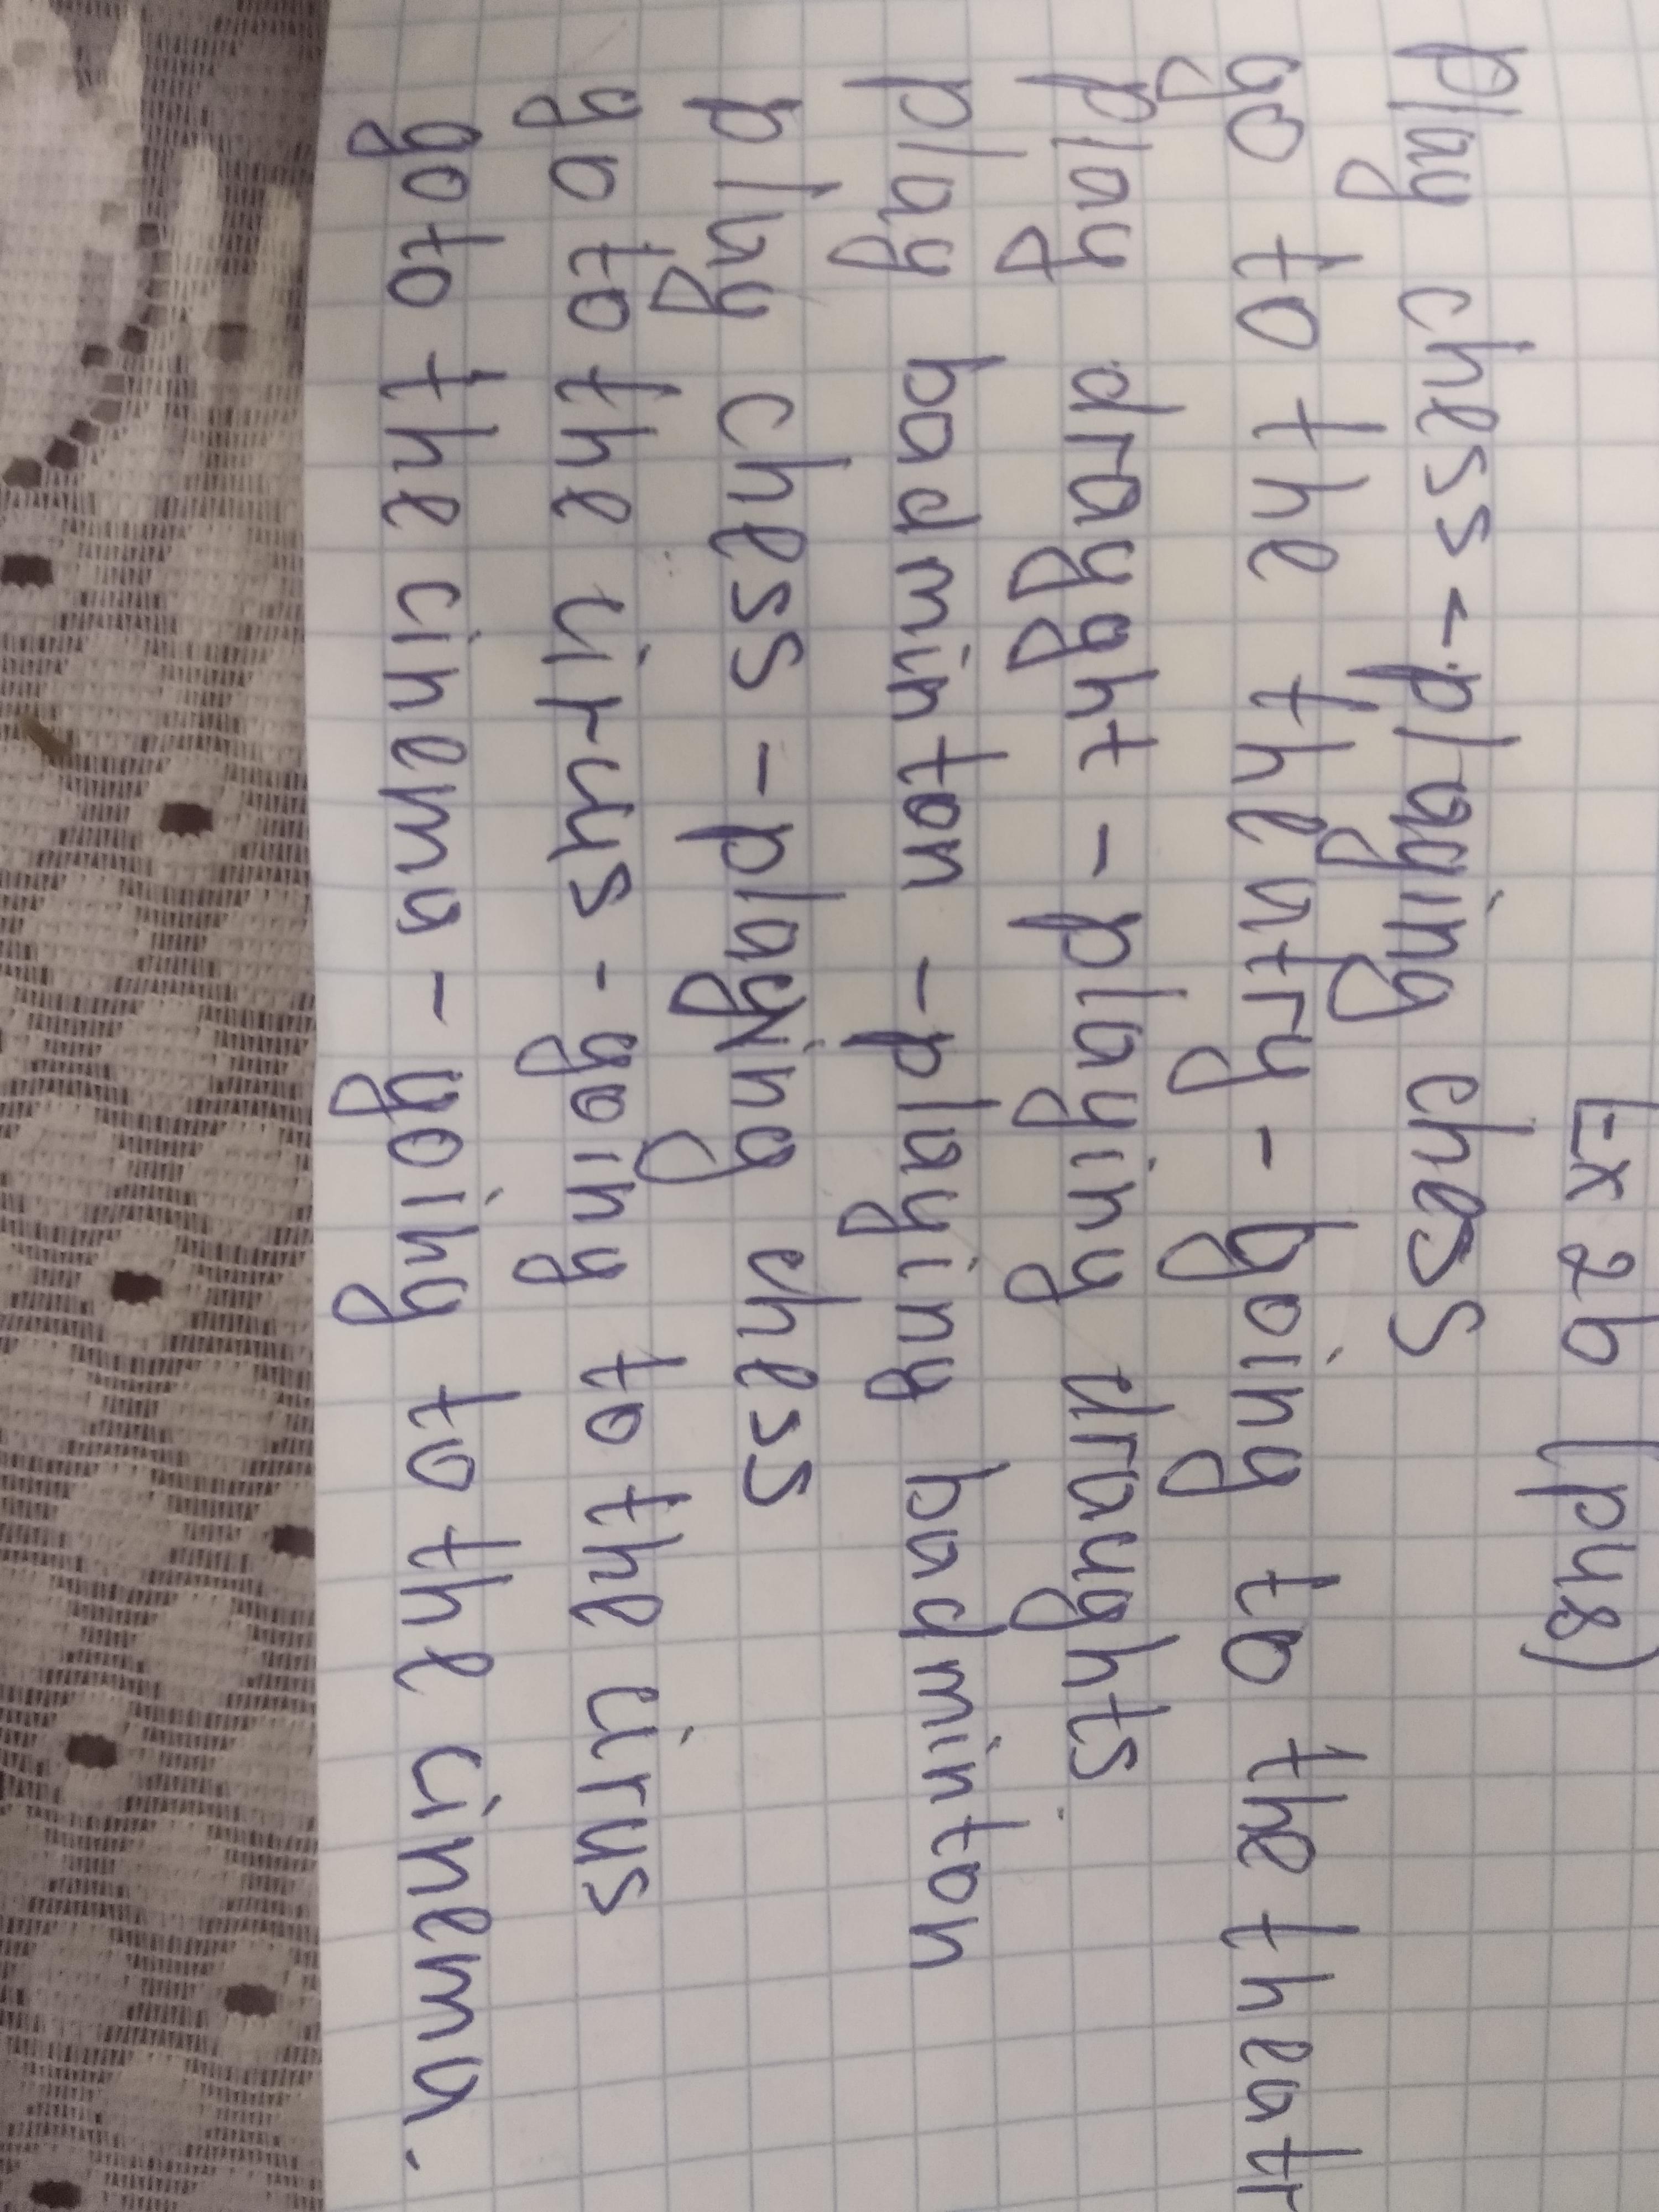 Ex 2b (p48)
play chess - playing chess
go to the theatry - going to the theatr
play draghght - playing draraghts
play badminton - playing badminton
play chess - playing chess
go to the circus - going to the circus
go to the cinema - going to the cinema.